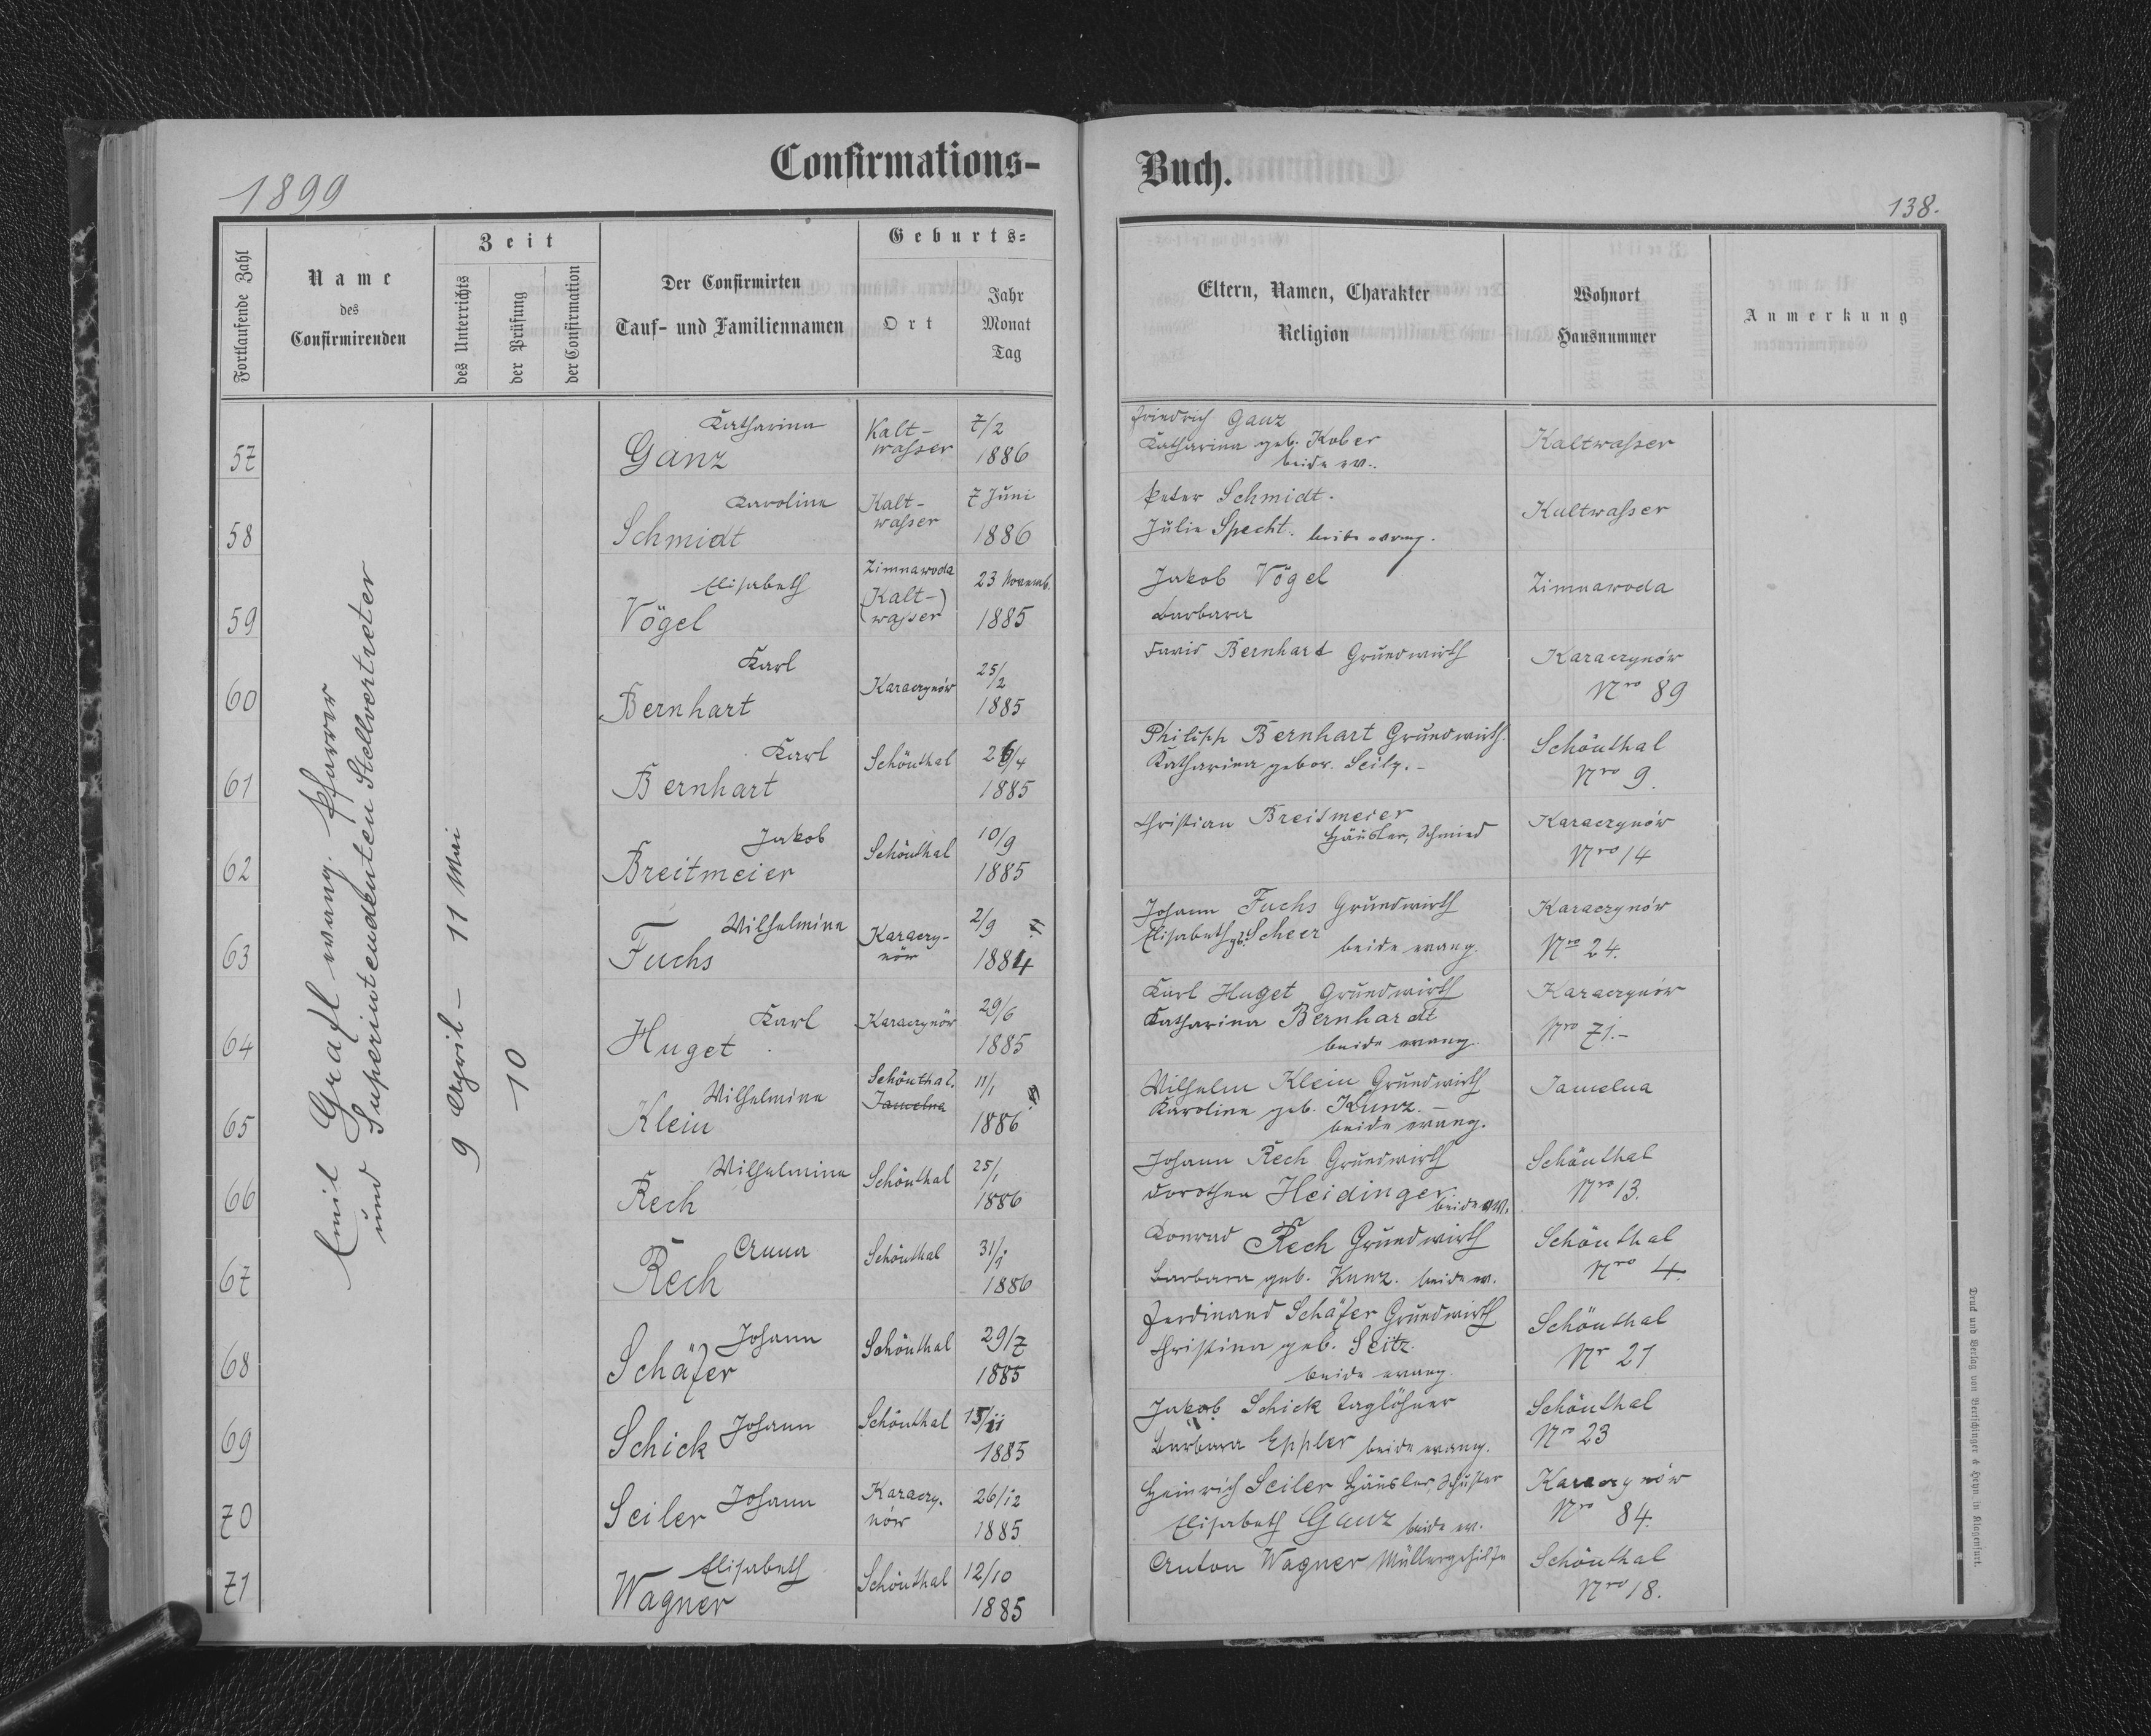 Confirmations-
Buch.
1899
138.
Fortlaufende Zahl
Name
des
Confirmirenden
Zeit
des Unterrichts
der Prüfung
der Confirmation
Der Confirmirten
Tauf- und Familiennamen
Geburts-
Ort
Jahr
Monat
Tag
Eltern, Namen, Charakter
Religion
Wohnort
Hausnummer
Anmerkung
Emil Grafl evang. Pfarrer
und Superintendenten Stellvertreter
9 April - 11 Mai
10
57
Katharina
Ganz
Kalt-
wasser
7/2
1886
Friedrich Ganz
Katharina geb. Kober
beide ev.
Kaltwasser
58
Karoline
Schmidt
Kalt-
wasser
7 Juni
1886
Peter Schmidt.
Julie Specht. beide evang.
Kaltwasser
59
Elisabeth
Vögel
Zimnawoda
(Kalt-)
wasser
23 Novemb.
1885
Jakob Vögel
Barbara
Zimnawoda
60
Karl
Bernhart
Karaczynów
25/2
1885
David Bernhart Grundwirth
Karaczynów
Nro 89
61
Karl
Bernhart
Schönthal
26/4
1885
Philipp Bernhart Grundwirth.
Katharina gebor. Seitz.-
Schönthal
Nro 9.
62
Jakob
Breitmeier
Schönthal
10/9
1885
Christian Breitmeier
Häusler, Schmied
Karaczynów
Nro 14
63
Wilhelmine
Fuchs
Karaczy-
nów
2/9
1884
Johann Fuchs Grundwirth
Elisabeth gb. Scheer
beide evang.
Karaczynów
Nro 24.
64
Karl
Huget
Karaczynów
29/6
1885
Karl Huget Grundwirth
Katharina Bernhardt
beide evang.
Karaczynów
Nro 71.-
65
Wilhelmine
Klein
Schönthal.
Jamelna
11/1
1886
Wilhelm Klein Grundwirth
Karoline geb. Kunz.-
beide evang.
Jamelna
66
Wilhelmine
Rech
Schönthal
25/1
1886
Johann Rech Grundwirth
Dorothea Heidinger beide ev.
Schönthal
Nro 13.
67
Anna
Rech
Schönthal
31/1
1886
Konrad Rech Grundwirth
Barbara geb. Kunz. beide ev.
Schönthal
Nro 4.
68
Johann
Schäfer
Schönthal
29/7
1885
Ferdinand Schäfer Grundwirth
Christina geb. Seitz.
beide evang.
Schönthal
Nr 21
69
Johann
Schick
Schönthal
15/11
1885
Jakob Schick Taglöhner
Barbara Eppler beide evang.
Schönthal
Nro 23
70
Johann
Seiler
Karaczy-
nów
26/12
1885
Heinrich Seiler Häusler, Schuster
Elisabeth Ganz beide ev.
Karaczynów
Nro 84.
71
Elisabeth
Wagner
Schönthal
12/10
1885
Anton Wagner Müllergehilfe
Schönthal
Nro 18.
Druck und Verlag von Bertschinger & Heyn in Klagenfurt.